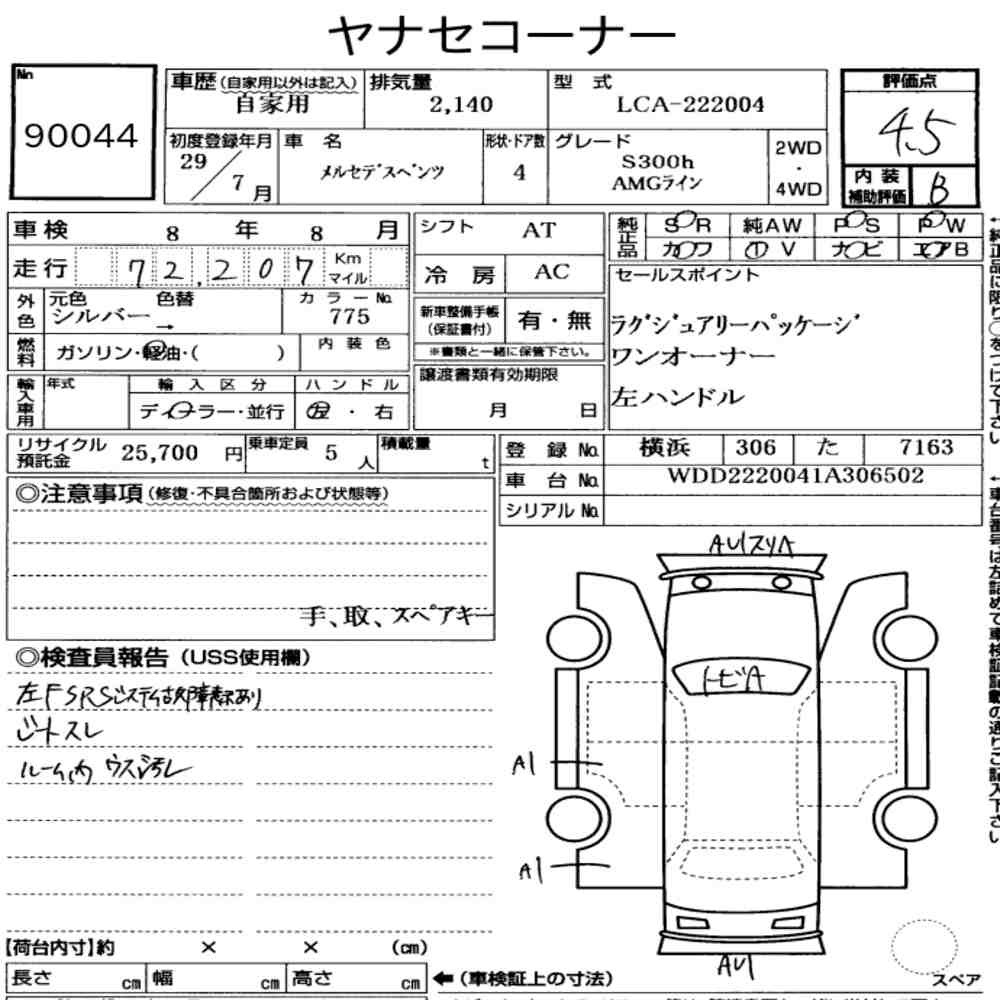 ヤナセコーナー
No
90044
車歴(自家用以外は記入)
自家用
排気量
2,140
型 式
LCA-222004
評価点
4.5
初度登録年月
29/7月
車 名
メルセデスベンツ
形状・ドア数
4
グレード
S300h
AMGライン
2WD
・
4WD
内装
補助評価
B
車検 8 年 8 月
走行 72,207 Km マイル
外色
元色 色替
シルバー →
カラーNo.
775
燃料
ガソリン・軽油・( )
内装色
輸入車用
年式
輸入区分
ディーラー・並行
ハンドル
左・右
シフト AT
冷房 AC
新車整備手帳
(保証書付)
有・無
※書類と一緒に保管下さい。
譲渡書類有効期限
月 日
純正品
SR 純AW PS PW
カワ TV ナビ エアB
セールスポイント
ラグジュアリーパッケージ
ワンオーナー
左ハンドル
リサイクル
預託金
25,700 円
乗車定員 5 人
積載量 t
登録No. 横浜 306 た 7163
車台No. WDD2220041A306502
シリアルNo.
◎注意事項(修復・不具合箇所および状態等)
手、取、スペアキー
◎検査員報告(USS使用欄)
左F SRSシステム故障表示あり
シートスレ
ルーム内 ウス汚レ
AU1スリA
トビA
A1
A1
AU1
スペア
【荷台内寸】約 × × (cm)
長さ cm 幅 cm 高さ cm
←(車検証上の寸法)
←純正品に限り○をつけて下さい
←車台番号は左詰めで車検証記載の通りご記入下さい